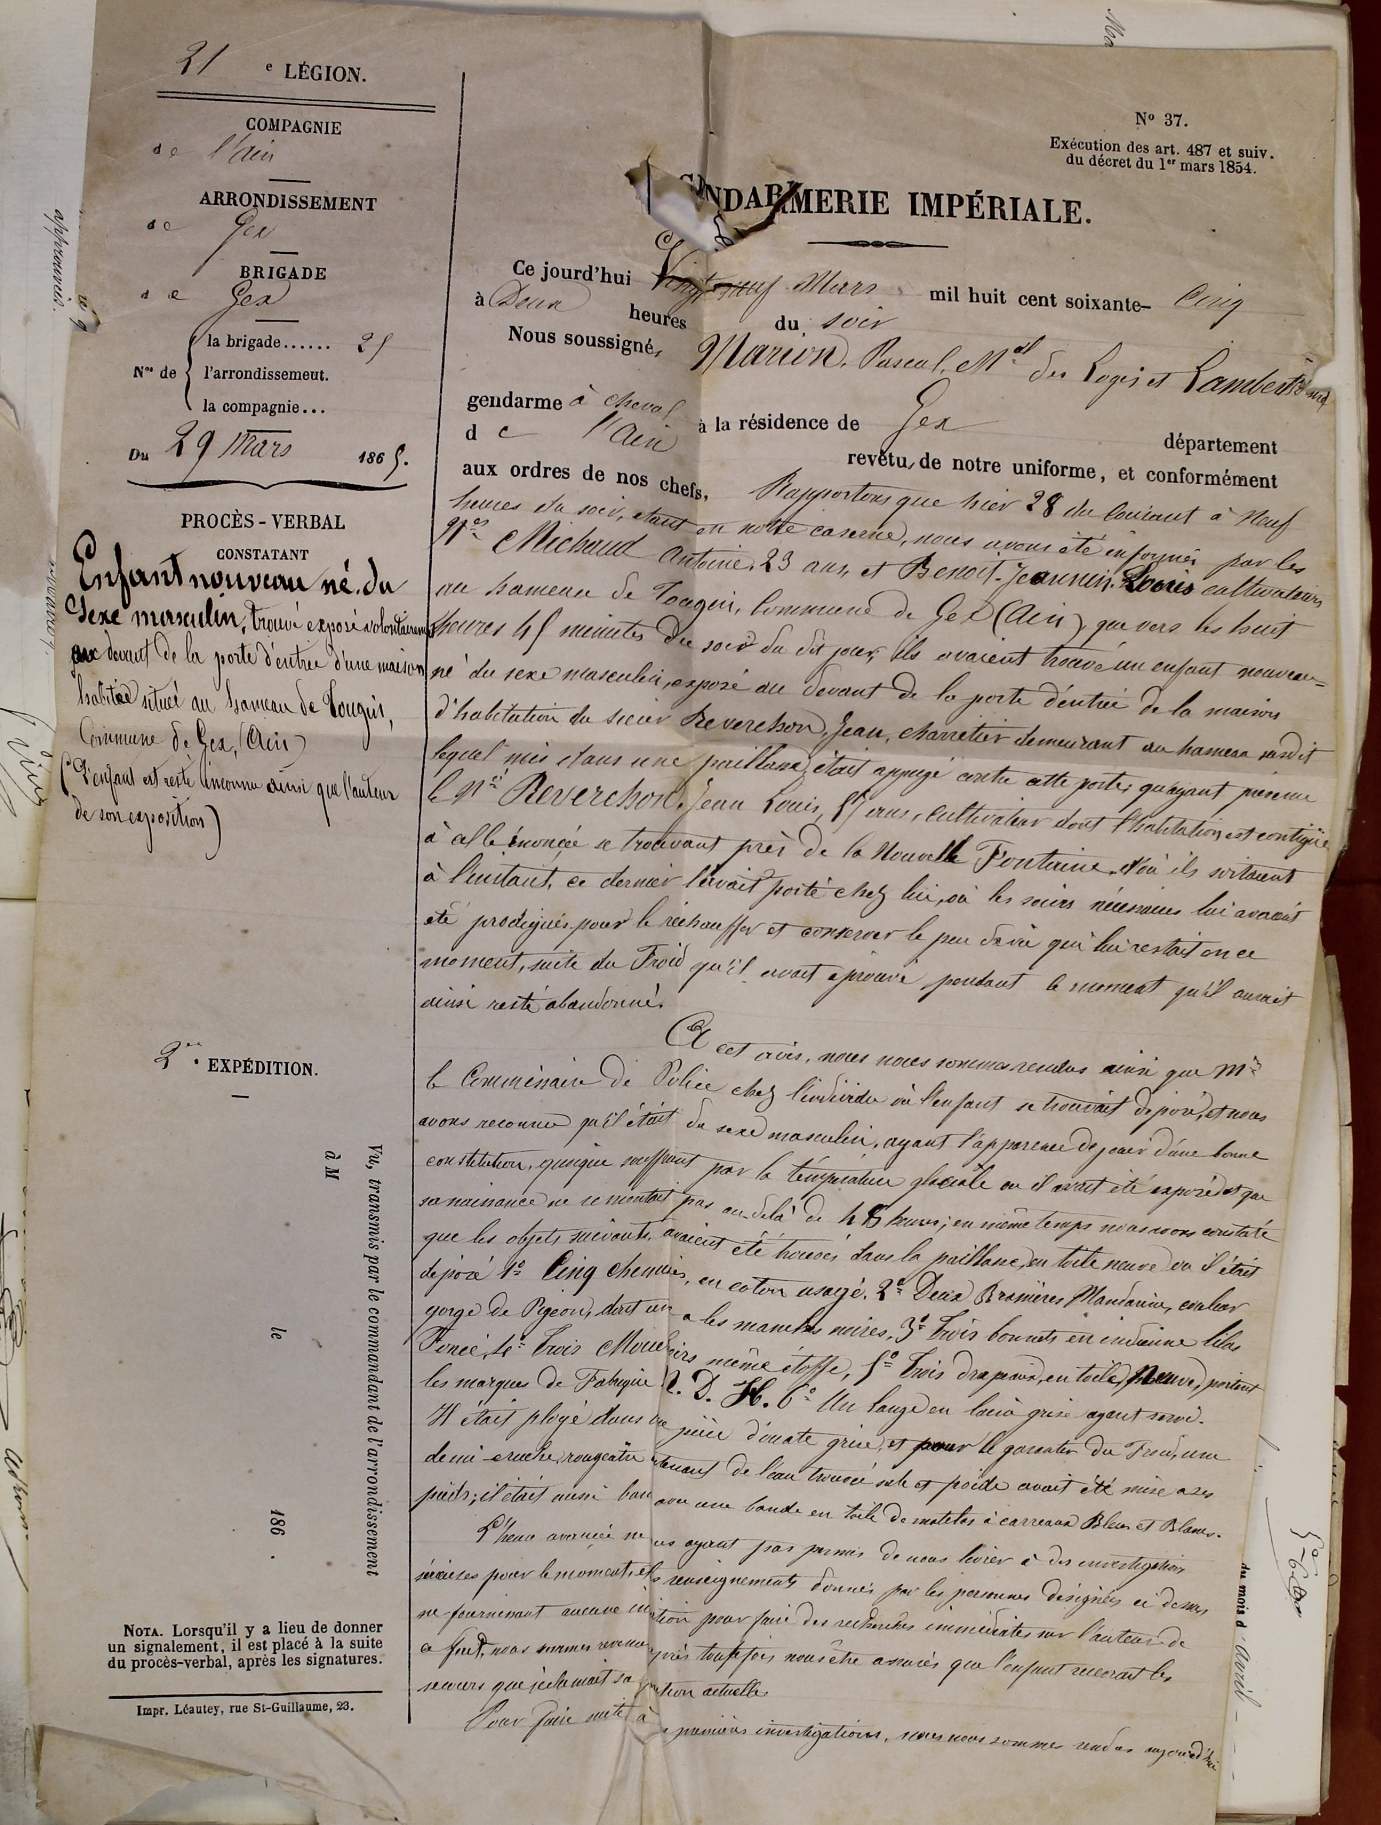 21 e LÉGION.
COMPAGNIE
de l'Ain
ARRONDISSEMENT
de Gex
BRIGADE
de Gex
Nos de
la brigade...... 25
l'arrondissement.
la compagnie...
Du 29 Mars 1865.
PROCÈS-VERBAL
CONSTATANT
Enfant nouveau né du
sexe masculin, trouvé exposé volontairement
au devant de la porte d'entrée d'une maison
habitée situé au hameau de Tougin,
Commune de Gex, (Ain)
(L'enfant est resté inconnu ainsi que l'auteur
de son exposition)
2me EXPÉDITION.
Vu, transmis par le commandant de l'arrondissement
à M
le 186 .
NOTA. Lorsqu'il y a lieu de donner
un signalement, il est placé à la suite
du procès-verbal, après les signatures.
Impr. Léautey, rue St-Guillaume, 23.
No 37.
Exécution des art. 487 et suiv.
du décret du 1er mars 1854.
GENDARMERIE IMPÉRIALE.
Ce jourd'hui Vingt neuf Mars mil huit cent soixante- Cinq
à Deux heures du soir
Nous soussignés, Marion, Pascal, Mal des Logis et Lambert
gendarme à cheval à la résidence de Gex département
de l'Ain revêtu, de notre uniforme, et conformément
aux ordres de nos chefs, Rapportons que hier 28 du Courant à Neuf
heures du soir, étant en notre caserne, nous avons été informés par les
Nés Michaud Antoine, 23 ans, et Benoit-Jeannin Louis cultivateurs
au hameau de Tougin, Commune de Gex (Ain), que vers les huit
heures 45 minutes du soir du dit jour, ils avaient trouvé un enfant nouveau-
né du sexe masculin, exposé au devant de la porte d'entrée de la maison
d'habitation du sieur Reverchon, Jean, charretier demeurant au hameau susdit
lequel mis dans une paillasse, était appuyé contre cette porte; qu'ayant prévenu
le Né Reverchon, Jean Louis, 57 ans, cultivateur dont l'habitation est contigüe
à celle énoncée se trouvant près de la Nouvelle Fontaine, d'où ils sortaient
à l'instant, ce dernier l'avait porté chez lui, où les soins nécessaires lui avaient
été prodigués, pour le réchauffer et conserver le peu de vie qui lui restait en ce
moment, suite du Froid qu'il avait éprouvé pendant le moment qu'il aurait
ainsi resté abandonné.
A cet avis, nous nous sommes rendus ainsi que Mr
le Commissaire de Police chez l'individu où l'enfant se trouvait déposé, et nous
avons reconnu qu'il était du sexe masculin, ayant l'apparence de jouir d'une bonne
constitution, quoique souffrant par la température glaciale où il avait été exposé et que
sa naissance ne remontait pas au delà de 48 heures; en même temps nous avons constaté
que les objets suivants, avaient été trouvés dans la paillasse, en toile neuve où il était
déposé 1o Cinq chemises, en coton usagé. 2o Deux Brassières Mandarine, couleur
gorge de Pigeon, dont un a les manches noires, 3o Trois bonnets en indienne lilas
Foncé, 4o Trois Mouchoirs même étoffe, 5o Trois drapeaux, en toile, Neuve, portant
les marques de Fabrique D. H. 6o Un lange en laine grise ayant servi.
Il était ployé dans une pièce d'ouate grise, et pour le garantir du Froid, une
demi cruche, rougeâtre contenant de l'eau trouvée sale et froide avait été mise à ses
pieds; il était aussi bandé avec une bande en toile de matelas à carreaux Bleus et Blancs.
L'heure avancée ne nous ayant pas permis de nous livrer à des investigations
sérieuses pour le moment, et les renseignements donnés par les personnes désignées ci dessus
ne fournissant aucune pour faire des recherches immédiates sur l'auteur de
ce fait, nous sommes revenus après toutefois nous être assurés que l'enfant recevrait les
secours que réclamait sa position actuelle.
Pour faire suite à premières investigations, nous nous sommes rendus aujourd'hui
du mois d'avril